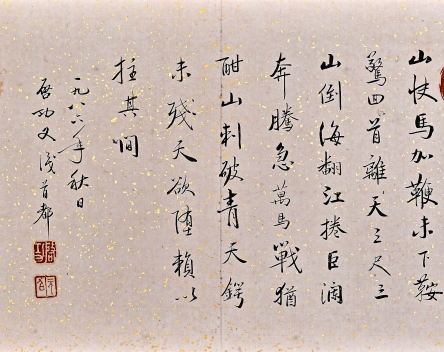 山快馬加鞭未下鞍
驚回首離天三尺三
山倒海翻江捲巨瀾
奔騰急萬馬戰猶
酣山刺破青天鍔
未殘天欲堕賴以
拄其間
一九八六年秋日
啟功首都